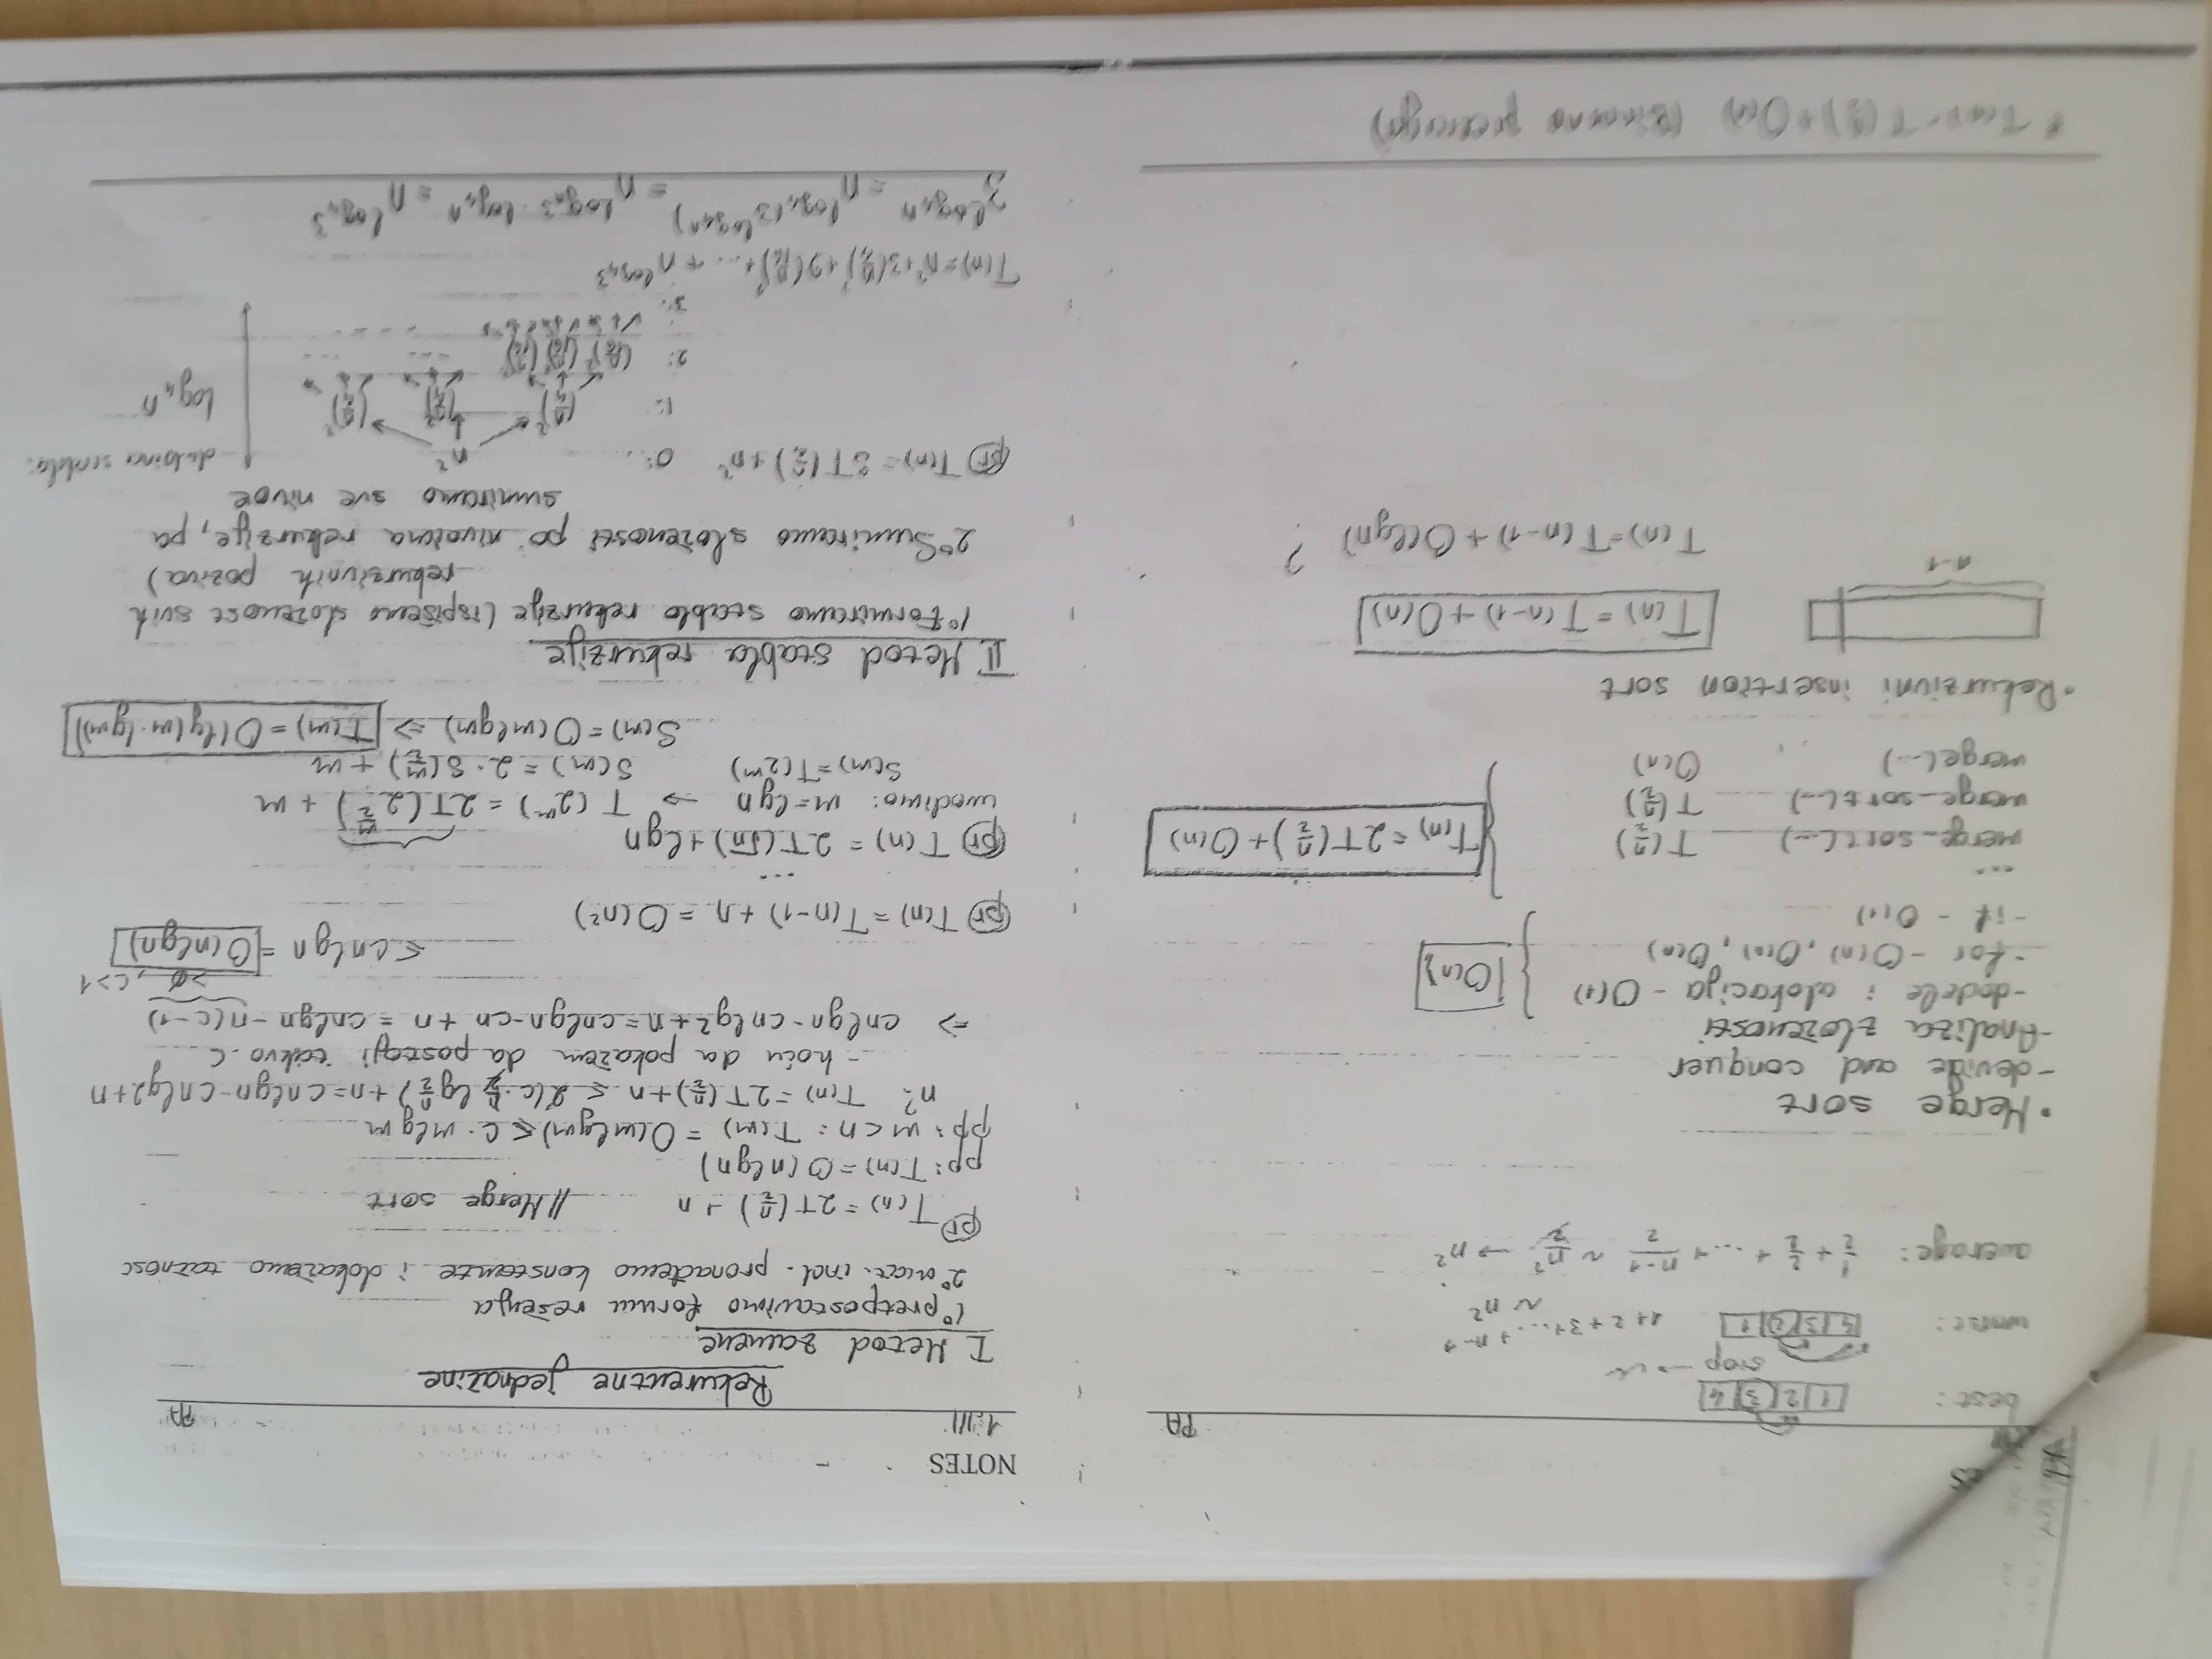 ES
PA
best: 1 2 3 4
stop →
worst: 4 3 2 1 1+2+3+...+n-1
~ n²
average: 1/2 + 2/2 + ... + (n-1)/2 ~ n²/2 → n²
• Merge sort
- devide and conquer
- Analiza složenosti
- dodele i alokacija - O(1)
- for - O(n), O(n), O(n)
- if - O(1)
O(n)
...
merge_sort(...) T(n/2)
merge_sort(...) T(n/2)
merge(...) O(n)
T(n) = 2T(n/2) + O(n)
• Rekurzivni insertion sort
n-1
T(n) = T(n-1) + O(n)
T(n) = T(n-1) + O(lgn) ?
* T(n) = T(n/2) + O(n) (Binarna pretraga)
NOTES
1.III PA
Rekurentne jednačine
I Metod zamene
1° pretpostavimo formu rešenja
2° mat. ind. pronađemo konstante i dokažemo tačnost
pr T(n) = 2T(n/2) + n // Merge sort
pp: T(n) = O(nlgn)
pp: m<n: T(m) = O(mlgm) ≤ c·mlgm
n? T(n) = 2T(n/2) + n ≤ 2(c·n/2 lg n/2) + n = cnlgn - cnlg2 + n
- hoću da pokažem da postoji takvo c
⇒ cnlgn - cnlg2 + n = cnlgn - cn + n = cnlgn - n(c-1)
>0, c>1
≤ cnlgn = O(nlgn)
pr T(n) = T(n-1) + n = O(n²)
...
pr T(n) = 2T(√n) + lgn
uvodimo: m = lgn → T(2^m) = 2T(2^(m/2)) + m
S(m) = T(2^m) S(m) = 2·S(m/2) + m
S(m) = O(mlgm) ⇒ T(m) = O(lg(m·lgm))
II Metod stabla rekurzije
1° Formiramo stablo rekurzije (ispišemo složenost svih
rekurzivnih poziva)
2° Sumiramo složenosti po nivoima rekurzije, pa
sumiramo sve nivoe
pr T(n) = 3T(n/4) + n² 0: n² dubina stabla:
1: (n/4)² (n/4)² (n/4)² log₄n
2: (n/16)² (n/16)² (n/16)² --- ---
3:
T(n) = n² + 3(n/4)² + 9(n/16)² + ... + n^(log₄3)
3^(log₄n) = n^(logₙ(3^(log₄n))) = n^(logₙ3 · log₄n) = n^(log₄3)